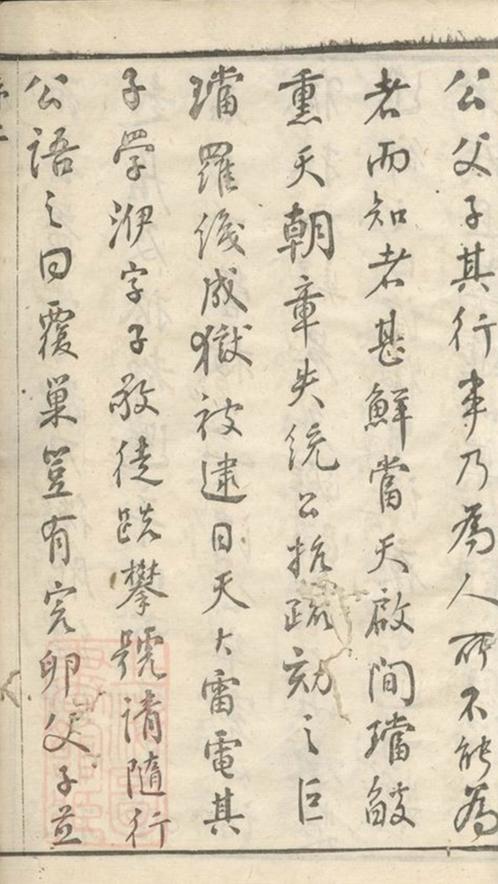 公父子其行事乃為人所不能為
者而知者甚鮮當天啟間璫燄
熏天朝章失統公抗疏劾之巨
璫羅織成獄被逮日天大雷電其
子學洢字子敬徒跣攀號請隨行
公語之曰覆巢豈有完卵父子並